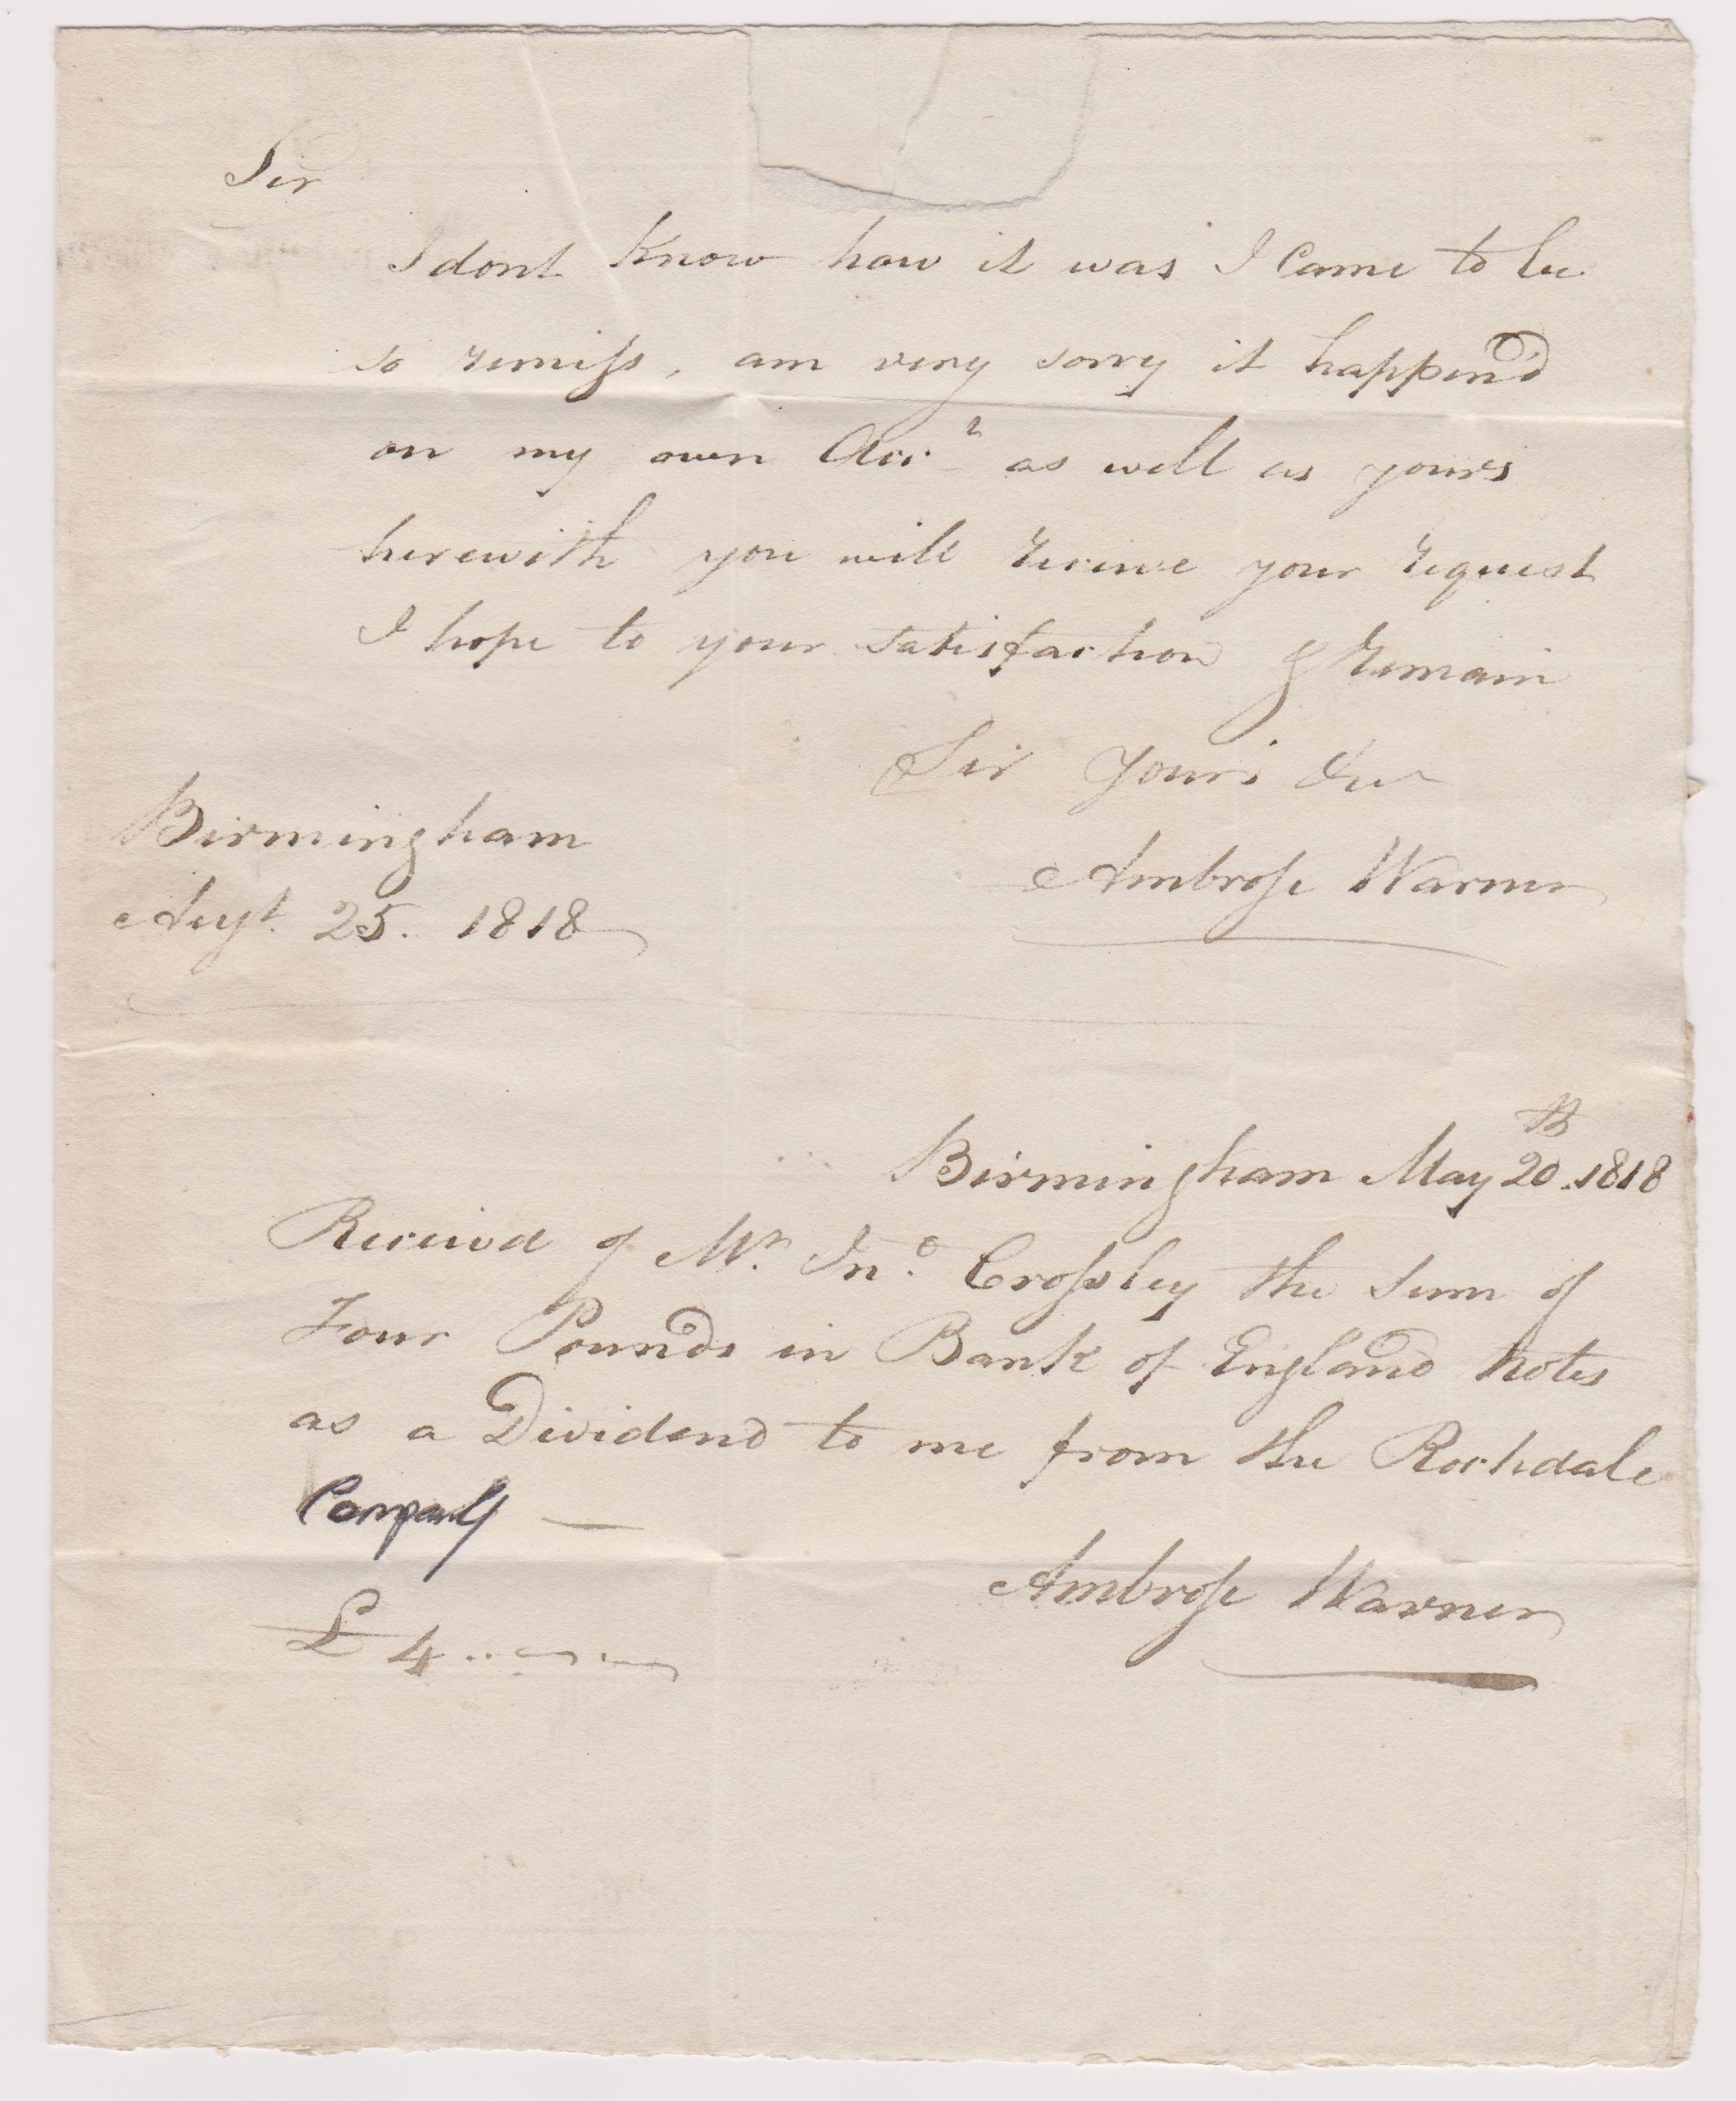 Sir
I dont Know how it was I Came to be
so remiss, am very sorry it happen'd
on my own Acct as well as yours
herewith you will receive your request
I hope to your satisfaction & remain
Sir Yours &c
Ambrose Warner
Birmingham
Augt. 25. 1818
Birmingham May 20th. 1818
Received of Mr. Jno. Crossley the Sum of
Four Pounds in Bank of England Notes
as a Dividend to me from the Rochdale
Company —
Ambrose Warner
£4